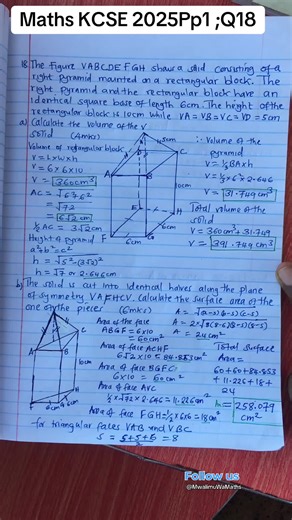 Maths KCSE 2025Pp1 ;Q18
18. The figure VABCDEFGH shows a solid consisting of a
right pyramid mounted on a rectangular block. The
right pyramid and the rectangular block have an
identical square base of length 6cm. The height of the
rectangular block is 10cm while VA = VB = VC = VD = 5cm
a) Calculate the volume of the
solid (4mks)
Volume of rectangular block
V = L×W×h
V = 6×6×10
V = 360cm³
AC = √6²+6²
= √72
= 6√2 cm
½ AC = 3√2 cm
Height of pyramid
a²+b²=c²
h = √5²-(3√2)²
h = √7 or 2.646cm
V
5cm
D
C
A
B
10cm
E
H
F
G
6cm
6cm
∴ Volume of the
pyramid
V = ⅓BA×h
V = ⅓×6²×2.646
V = 31.749cm³
Total volume of the
solid
V = 360cm³ + 31.749
V = 391.749 cm³
b) The solid is cut into identical halves along the plane
of symmetry VAFHCV. Calculate the surface area of the
one of the pieces (6mks)
V
C
A
B
10cm
F
G
6cm
Area of the face
ABGF = 6×10
= 60cm²
Area of face ACHF
6√2×10 = 84.853cm²
Area of face BGFC
6×10 = 60cm²
Area of face AVC
½×√72×2.646 = 11.226cm²
Area of face FGH = ½×6×6 = 18cm²
for triangular faces VAB and VBC
A = 24cm²
Total surface
Area =
60+60+84.853
+11.226+18+
24
= 258.079
cm²
Follow us
@MwalimuWaMaths